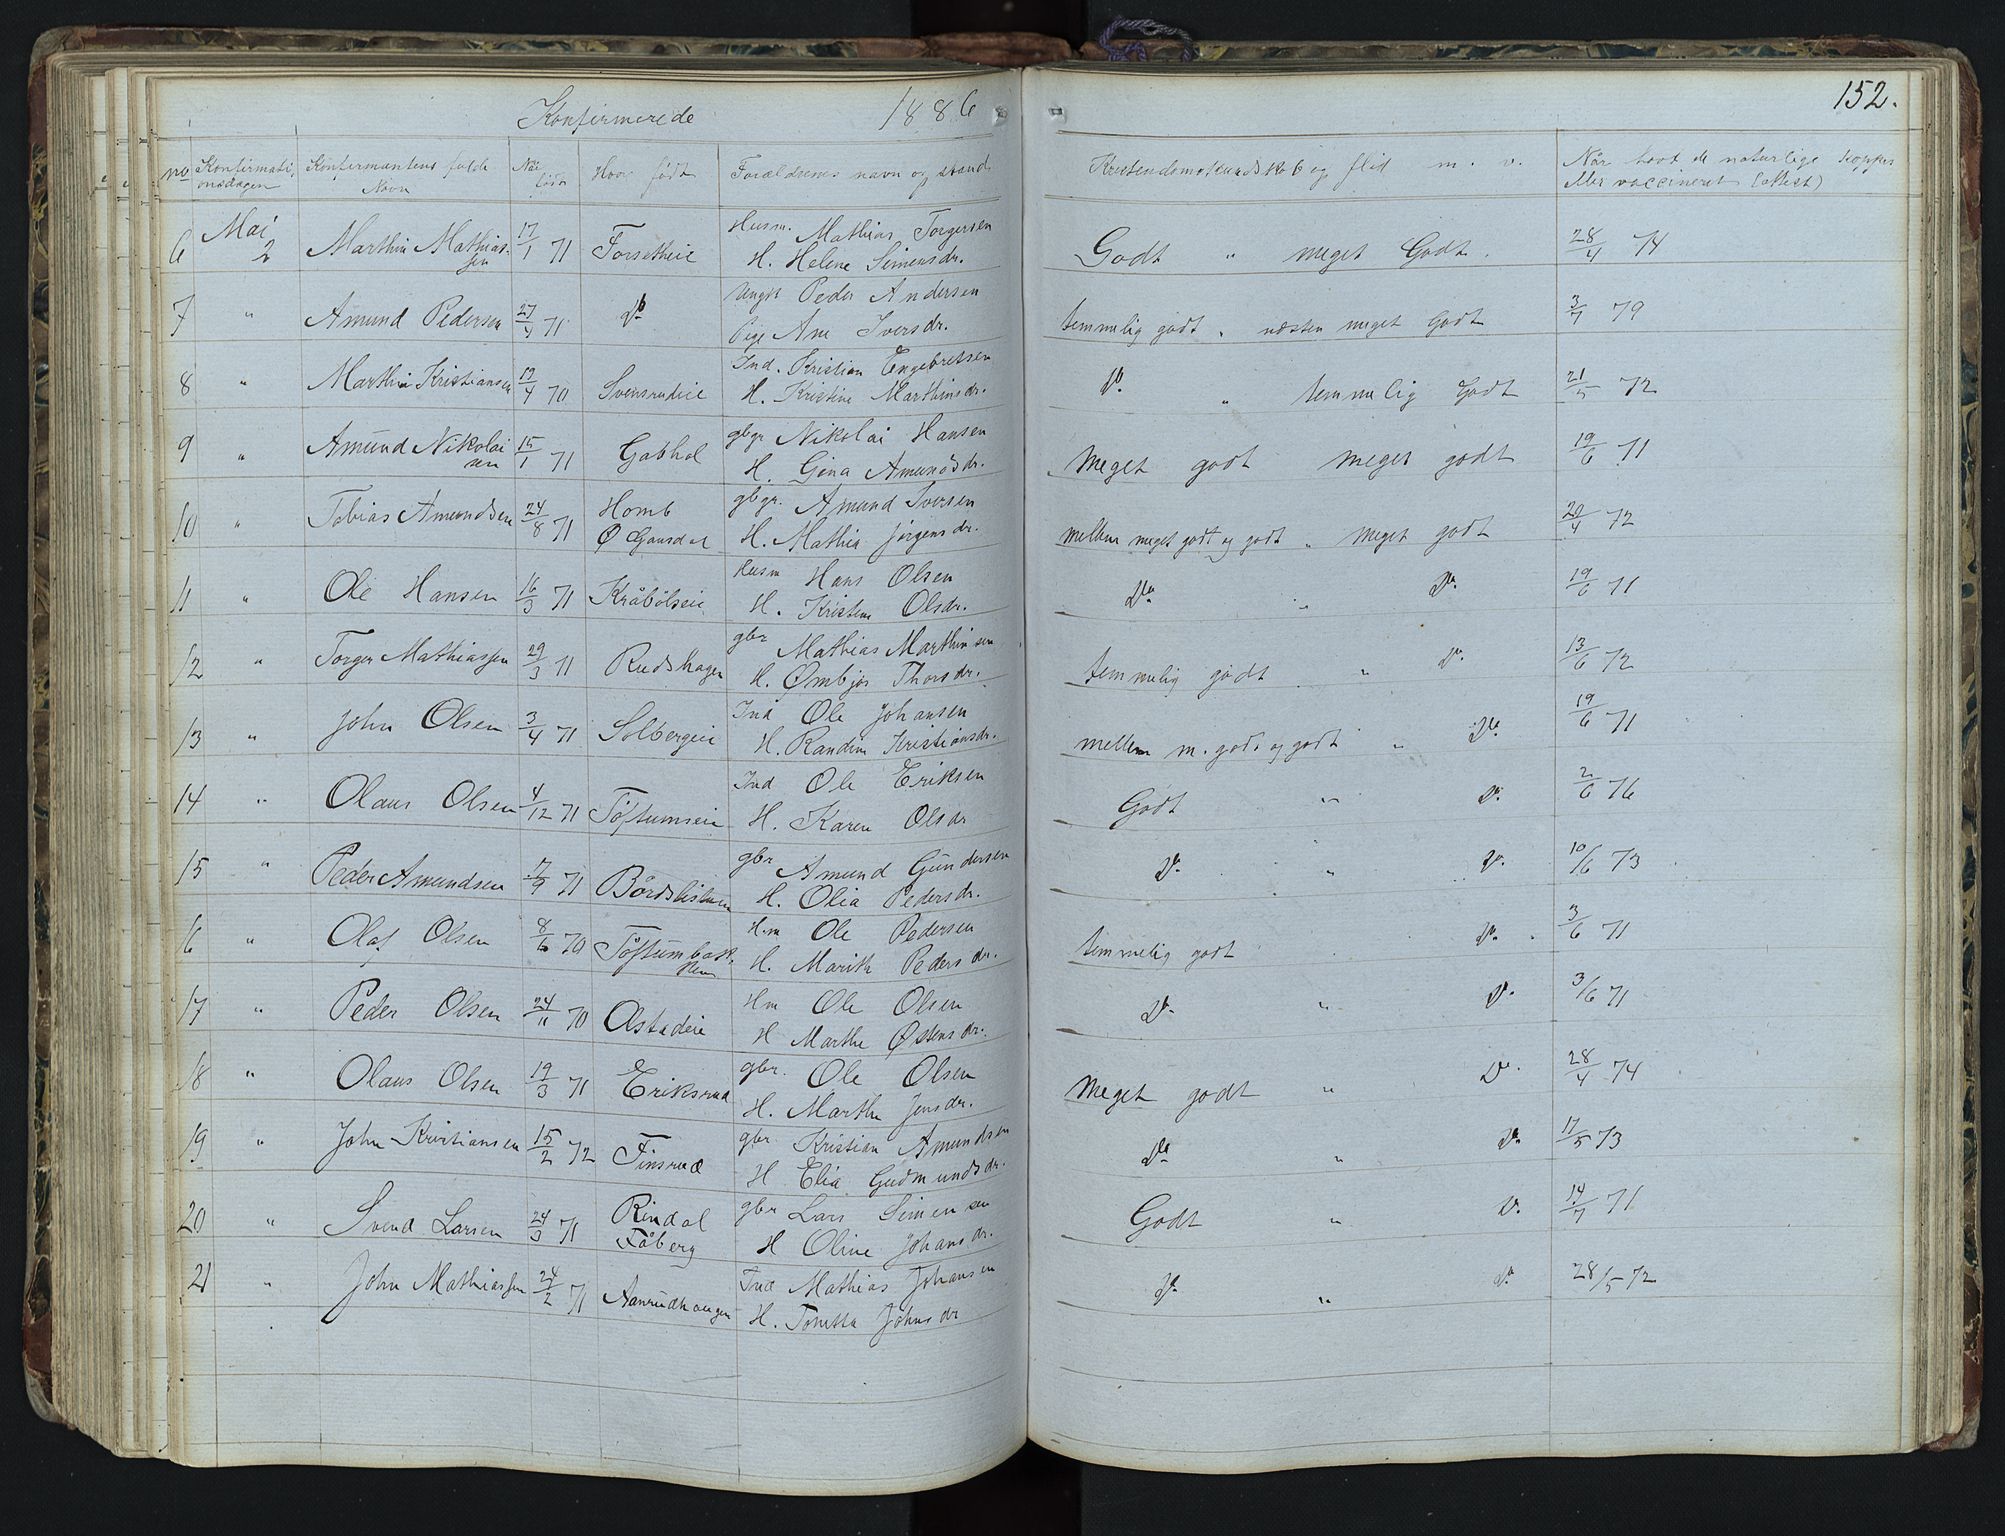 Konfirmerede 1886
152.
no Konfirmati, onsdagen Konfirmantens fulde Navn Når født Hvor født Forældrenes navn og stand Kristendomskundskab og flid m. v. Når havt de naturlige kopper
eller vaccineret (attest)
6 Mai 2 Marthin Mathias-sen 17/1 71 Forsetheie Husm. Mathias Torgersen
H. Helene Simensdr. Godt " meget Godt. 28/4 74
7 " Amund Pedersen 27/4 71 Do Ungk Peder Andersen
Pige Ane Iversdr. temmelig godt " næsten meget Godt 3/7 79
8 " Marthin Kristiansen 19/4 70 Svensrudeie Ind. Kristian Engebretsen
H. Kristine Marthinsdr. Do " temmelig Godt 21/5 72
9 " Amund Nikolai sen 15/1 71 Gabhol gbgr Nikolai Hansen
H. Gina Amundsdr. Meget godt meget godt 19/6 71
10 " Tobias Amundsen 24/8 71 Homb
Ø Gausdal gbgr. Amund Iversen
H. Mathia Jørgensdr. mellem meget godt og godt " meget godt 20/4 72
11 " Ole Hansen 16/3 71 Kråbølseie Husm Hans Olsen
H. Kristine Olsdr. Do " Do 19/6 71
12 " Torger Mathiassen 29/3 71 Rudshagen gbr Mathias Marthinsen
H. Ømbjør Thorsdr. temmelig godt " Do 13/6 72
13 " John Olsen 3/4 71 Solbergeie Ind Ole Johansen
H. Randine Kristiansdr. mellem m. godt og godt " Do 19/6 71
14 " Olaus Olsen 4/12 71 Tøftumseie Ind Ole Eriksen
H. Karen Olsdr Godt " Do 2/6 76
15 " Peder Amundsen 7/9 71 Bårdslistuen gbr Amund Gundersen
H. Olia Pedersdr. Do " Do 10/6 73
16 " Olaf Olsen 8/6 70 Tøftumbak-ken H.m Ole Pedersen
H. Marith Pedersdr. temmelig godt Do 3/6 71
17 " Peder Olsen 24/11 70 Olstadeie Hm Ole Olsen
H Marthe Østensdr. Do " Do 3/6 71
18 " Olaus Olsen 19/3 71 Eriksrud gbr. Ole Olsen
H. Marthe Jensdr. Meget godt " Do 28/4 74
19 " John Kristiansen 15/2 72 Finsrud gbr Kristian Amundsen
H Elia Gudmundsdr. Do " Do 17/5 73
20 " Svend Larsen 24/3 71 Rindal
Fåberg gbr Lars Simensen
H Oline Johansdr. Godt " Do 14/7 71
21 " John Mathiassen 24/2 71 Aanrudhaugen Ind Mathias Johansen
H. Tonetta Johnsdr Do " Do 28/5 72